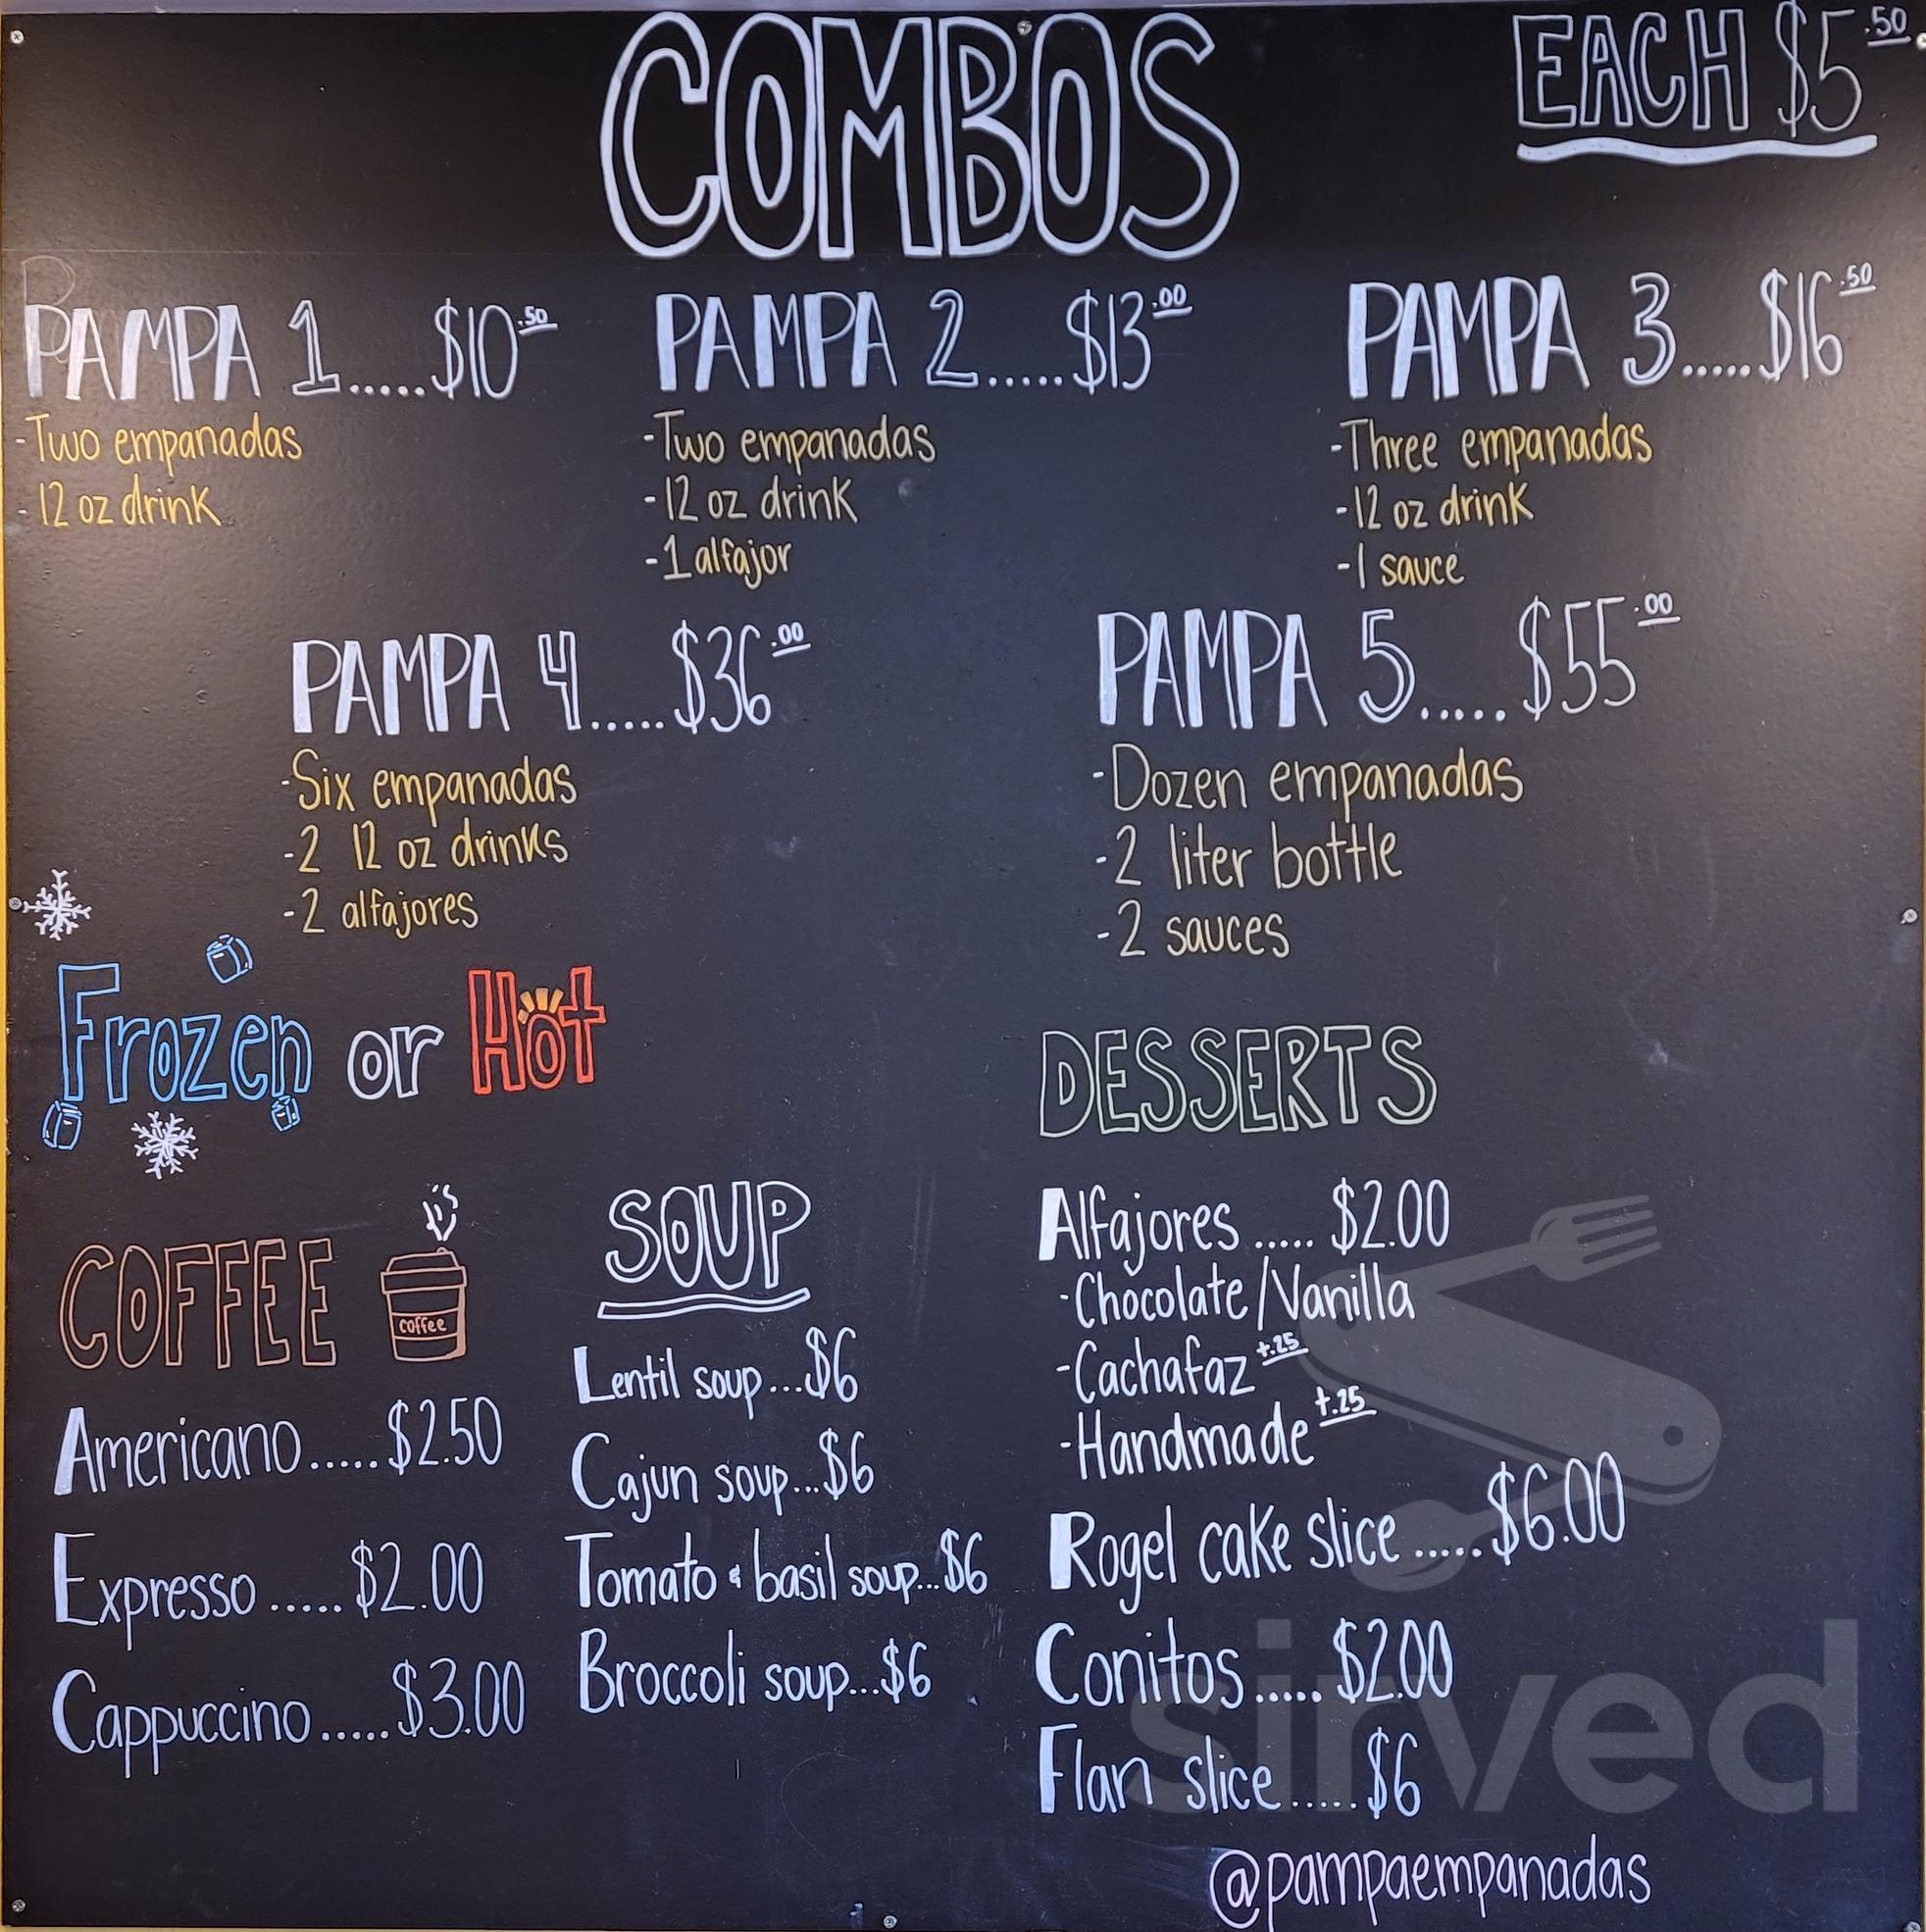 COMBOS
EACH $5.50
PAMPA 1.....$10.50
-Two empanadas
-12 oz drink
PAMPA 2.....$13.00
-Two empanadas
-12 oz drink
-1 alfajor
PAMPA 3.....$16.50
-Three empanadas
-12 oz drink
-1 sauce
PAMPA 4.....$36.00
-Six empanadas
-2 12 oz drinks
-2 alfajores
PAMPA 5.....$55.00
-Dozen empanadas
-2 liter bottle
-2 sauces
Frozen or Hot
COFFEE
coffee
Americano.....$2.50
Expresso.....$2.00
Cappuccino.....$3.00
SOUP
Lentil soup...$6
Cajun soup...$6
Tomato & basil soup...$6
Broccoli soup...$6
DESSERTS
Alfajores.....$2.00
-Chocolate/Vanilla
-Cachafaz +.25
-Handmade +.25
Rogel cake slice.....$6.00
Conitos.....$2.00
Flan slice.....$6
@pampaempanadas
sirved